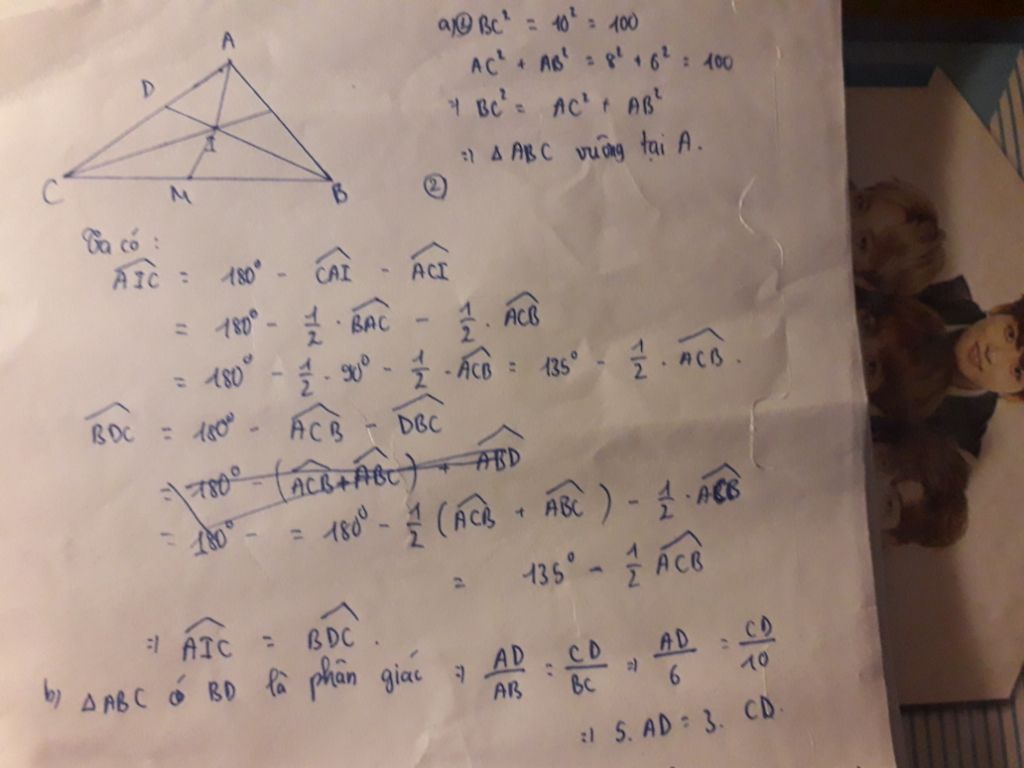 A
D
I
C
M
B
a) ① BC² = 10² = 100
AC² + AB² = 8² + 6² = 100
⇒ BC² = AC² + AB²
⇒ △ABC vuông tại A.
②
Ta có :
$\widehat{AIC}$ = 180° - $\widehat{CAI}$ - $\widehat{ACI}$
= 180° - $\frac{1}{2}$ . $\widehat{BAC}$ - $\frac{1}{2}$ . $\widehat{ACB}$
= 180° - $\frac{1}{2}$ . 90° - $\frac{1}{2}$ . $\widehat{ACB}$ = 135° - $\frac{1}{2}$ . $\widehat{ACB}$ .
$\widehat{BDC}$ = 180° - $\widehat{ACB}$ - $\widehat{DBC}$
= 180° - ($\widehat{ACB}$ + $\widehat{ABC}$) + $\widehat{ABD}$
= 180° - = 180° - $\frac{1}{2}$ ($\widehat{ACB}$ + $\widehat{ABC}$) - $\frac{1}{2}$ . $\widehat{ACB}$
= 135° - $\frac{1}{2}$ $\widehat{ACB}$
⇒ $\widehat{AIC}$ = $\widehat{BDC}$ .
b) △ABC có BD là phân giác ⇒ $\frac{AD}{AB}$ = $\frac{CD}{BC}$ ⇒ $\frac{AD}{6}$ = $\frac{CD}{10}$
⇒ 5. AD = 3. CD.